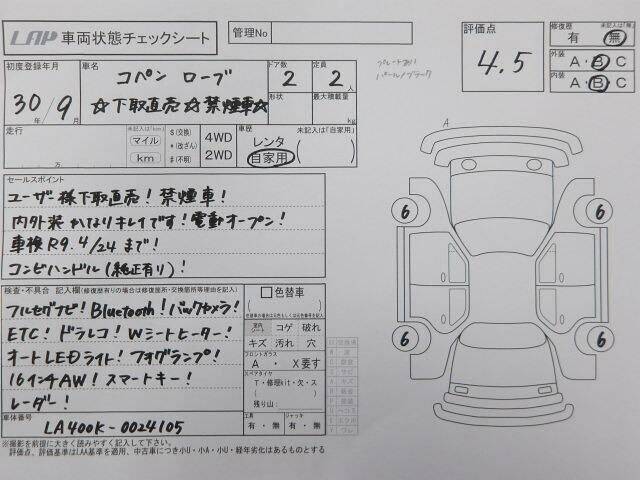 LAP 車両状態チェックシート
管理No
評価点
4.5
修復歴
未記入は「無」
有 無
外装
A・B・C
内装
A・B・C
初度登録年月
30年 9月
車名
コペン ローブ
☆下取直売☆禁煙車☆
ドア数
2
定員
2人
形状
最大積載量
kg
走行
万
未記入は「km」
マイル
km
$(交換)
*(改ざん)
#(不明)
4WD
2WD
車歴
未記入は「自家用」
レンタ
自家用
セールスポイント
ユーザー様下取直売!禁煙車!
内外装かなりキレイです!電動オープン!
車検R9.4/24まで!
コンビハンドル(純正有り)!
検査・不具合 記入欄(修復歴有りの場合は修復箇所・交換箇所等理由を記入)
フルセグナビ!Bluetooth!バックカメラ!
ETC!ドラレコ!Wシートヒーター!
オートLEDライト!フォグランプ!
16インチAW!スマートキー!
レーダー!
色替車
室内シート
コゲ 破れ
キズ 汚れ 穴
フロントガラス
A ・ X要す
スペアタイヤ
T・修理kit・欠・ス
残り山:
工具
有・無
ジャッキ
有・無
車体番号
LA400K-0024105
※撮影を前提に大きく読みやすく記入して下さい。
評価点、評価基準はLAA基準を適用、中古車につき小U・小A・小U・経年劣化はあるものとする
A
6
6
6
6